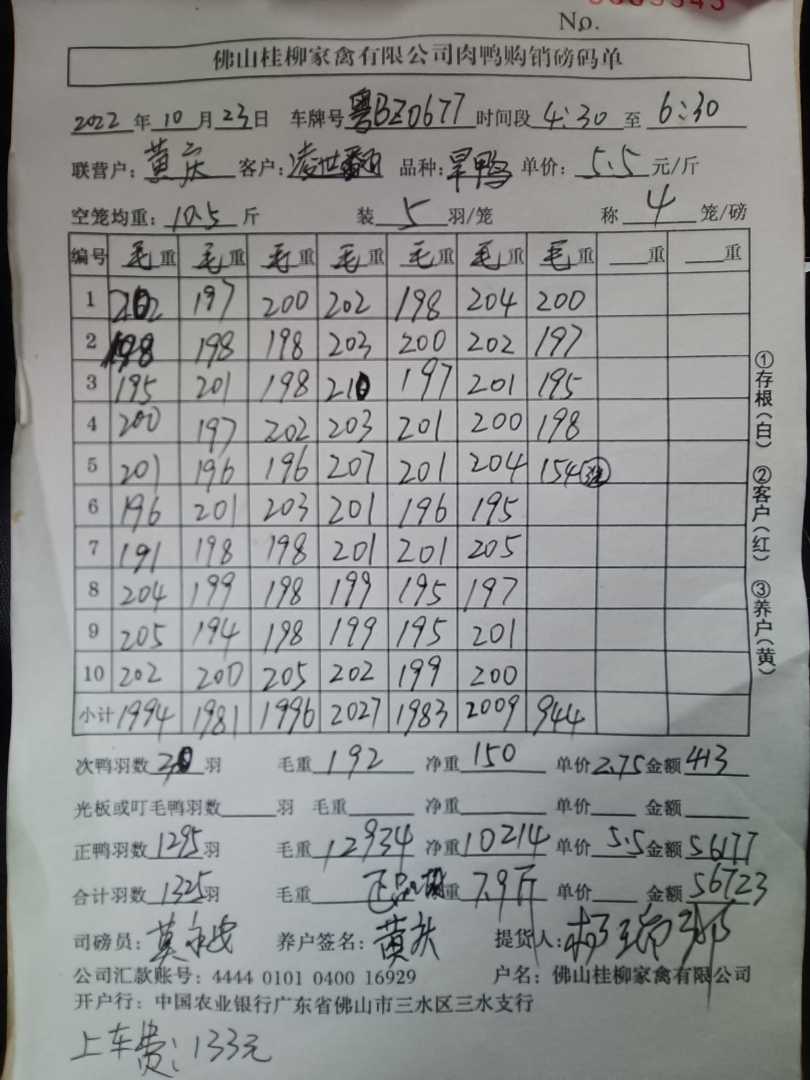 No.
佛山桂柳家禽有限公司肉鸭购销磅码单
2022年10月23日 车牌号粤BZ0677时间段4:30至6:30
联营户:黄庆 客户:凌世 品种:旱鸭 单价:5.5元/斤
空笼均重:10.5斤 装5羽/笼 称4笼/磅
编号 毛重 毛重 毛重 毛重 毛重 毛重 毛重 重 重
1 202 197 200 202 198 204 200
2 198 198 198 203 200 202 197
3 195 201 198 210 197 201 195
4 200 197 202 203 201 200 198
5 201 196 196 207 201 204 154
6 196 201 203 201 196 195
7 191 198 198 201 201 205
8 204 199 198 199 195 197
9 205 194 198 199 195 201
10 202 200 205 202 199 200
小计 1994 1981 1996 2027 1983 2009 944
①存根(白) ②客户(红) ③养户(黄)
次鸭羽数30羽 毛重192 净重150 单价2.75金额413
光板或叮毛鸭羽数羽 毛重 净重 单价 金额
正鸭羽数1295羽 毛重12934 净重10214 单价5.5金额56177
合计羽数1325羽 毛重 重7.9斤 单价 金额56723
司磅员: 养户签名:黄庆 提货人:
公司汇款账号:4444 0101 0400 16929 户名:佛山桂柳家禽有限公司
开户行:中国农业银行广东省佛山市三水区三水支行
上车费:133元